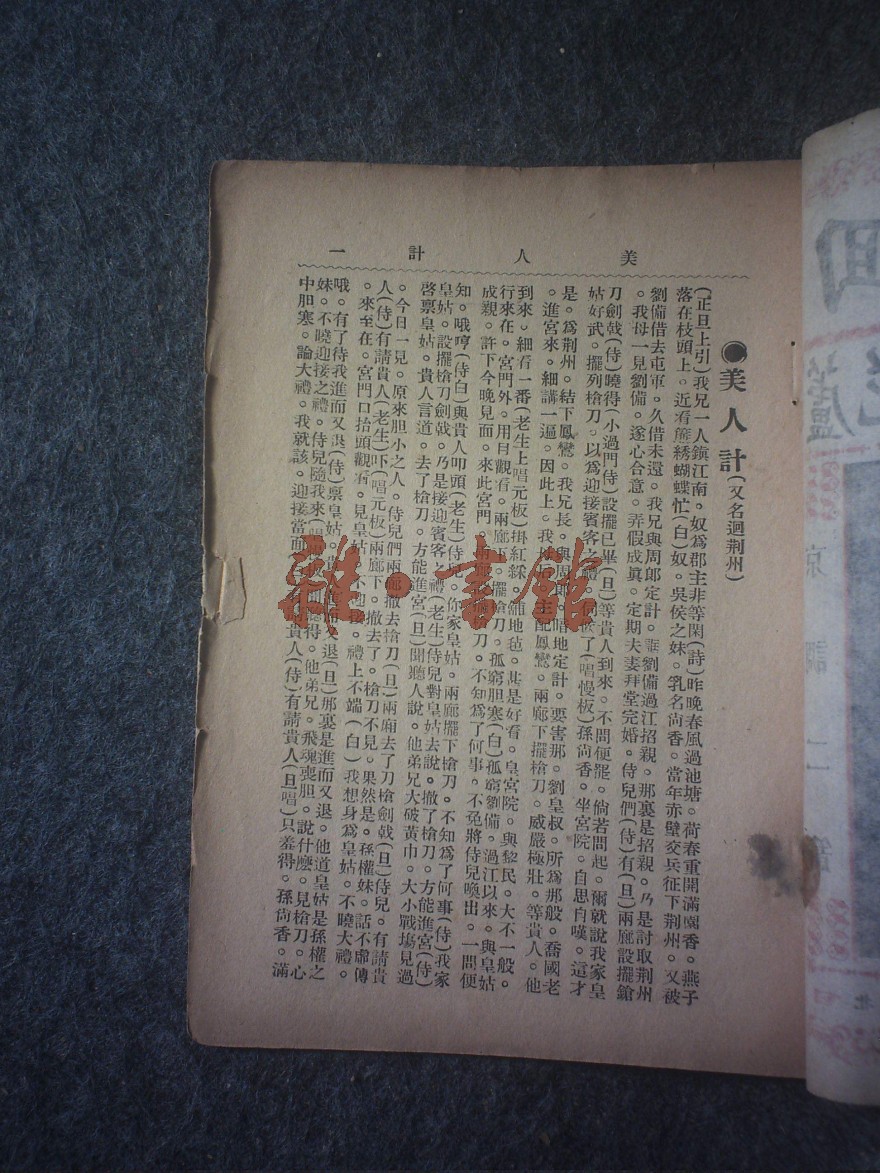 美人計 一
●美人計(又名迴荆州)
(正旦上引)我兄一人鎮江南。奴爲郡主非等閑(詩)昨晚春風過池塘。荷春重開滿園香。燕子
落在枝頭上。近看簾綉蝴蝶忙(白)奴。吳侯之妹。乳名尙香。當年赤壁交兵征下荆州。又被
劉備借去屯軍。久借未還。我兄與周郎定計。誆劉備過江招親。那裏是招親。乃是討取荆州
。我母一見劉備。遂心合意。弄假成眞。定期夫妻拜堂完婚。侍兒們(侍)有(旦)兩廊設擺鎗
刀劍戟(侍)曉得(小過門侍)設擺已畢(旦)等貴人到來。不問便罷。倘若問起。爾就說我家皇
姑好武。擺列槍刀。以爲迎接賓客之禮。了(唱慢板)孫尙香。坐宮院。自思自嘆。這才
是。爲荆州。結下鳳鸞。我兄長。與周郎。暗地定計。要害那。劉皇叔。所爲那般。喬國老
。進宮來。細講一遍。因此上。我配鳳鸞。兩廊下擺槍刀。威嚴極壯。等貴人。他
到來。細看一番(老生上唱元板)掛紅綵。鋪地毡。甚是好看。皇宮院。與黎民。大不一般。
行來在。宮門外。用目觀看。兩廊下。擺槍刀。孤窮胆寒(白)孤窮劉備。過江以來。與皇姑
成親。許下今晚見面。來此宮門。槍刀。不知爲了何事。不免將侍兒喚出。一問便
知。哦哼(侍白)與貴人叩頭(老生)侍兒。你家皇姑。兩廊擺下槍刀。不知爲了何事(侍)我家
皇姑。設擺槍刀劍戟。乃是接迎賓客之禮(老生)侍兒對皇姑去說。撤了槍刀。方能進宮(侍)
啓禀皇姑。貴人言道。去了槍刀。方能進宮(旦)聞聽人說。他弟兄大破黃巾。大小戰塲見過
。今日一見。原來胆小之人。侍兒們兩廊撤去槍刀(旦)兩廂去了刀槍劍戟(旦)侍兒。有請貴
人(侍)有請貴人(老生)吓(唱元板)兩廊下。撤去了。槍刀不見。果然是。孫權妹。話不虛傳
。來至在。宮門口抬頭觀看。見皇姑。不迎接。禮上不端(白)我想身爲皇姑。不曉大禮。
哦。有了待我進而又退(侍)禀皇姑。貴又退(旦)那裏是進而又退。他道皇姑是孫權之
妹。不曉迎接之禮。侍兒隨我來(得。他弟兄。飛魂喪胆。說什麽。見槍刀。心
中胆寒。論大禮。我就該。迎接當面貴人(侍)有請貴人(旦唱)只羞得。孫尙香。滿
雜·書館